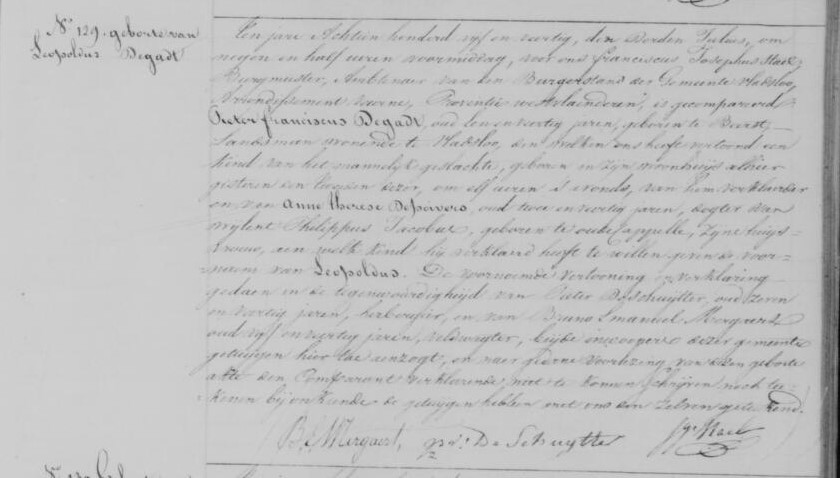 N° 129. geboorte van
Leopoldus Degadt
Ten jare Achtien honderd vyf en veertig, den derden Julius, om
negen en half uren voormiddag, voor ons franciscus Josephus
Burgmeester, Ambtenaer van den Burgerstand der Gemeente Vladsloo,
Arrondissement veurne, Provintie westvlaenderen, is gecompareerd
Pieter franciscus Degadt, oud een en veertig jaren, geboren te Beerst,
Landsman woonende te Vladsloo, den welken ons heeft vertoond een
kind van het mannelyk geslachte, geboren in zyn woonhuys alhier
gisteren den tweeden dezer, om elf uren 's avonds, van hem verklaerder
en van Anne therese Depoivers, oud twee en veertig jaren, dogter van
wylent Philippus Jacobus, geboren te oudecappelle, Zyne huys-
vrouw, aen welk kind hy verklaerd heeft te willen geven de voor-
naem van Leopoldus. De voornoemde vertooning en verklaring
gedaen in de tegenwoordigheyd van Pieter Deschuytter, oud zeven
en veertig jaren, herbergier, en van Bruno Emanuel Mergaert
oud vyf en veertig jaren, veldwagter, beyde inwooners dezer gemeente
getuygen hier toe aenzogt, en naer gedane voorlezing van dezen geboorte
akte den Comparant verklarende niet te konnen schryven noch tee-
kenen by onkunde de getuygen hebben met ons dezen geteekend.
B E Mergaert, De Schuytter